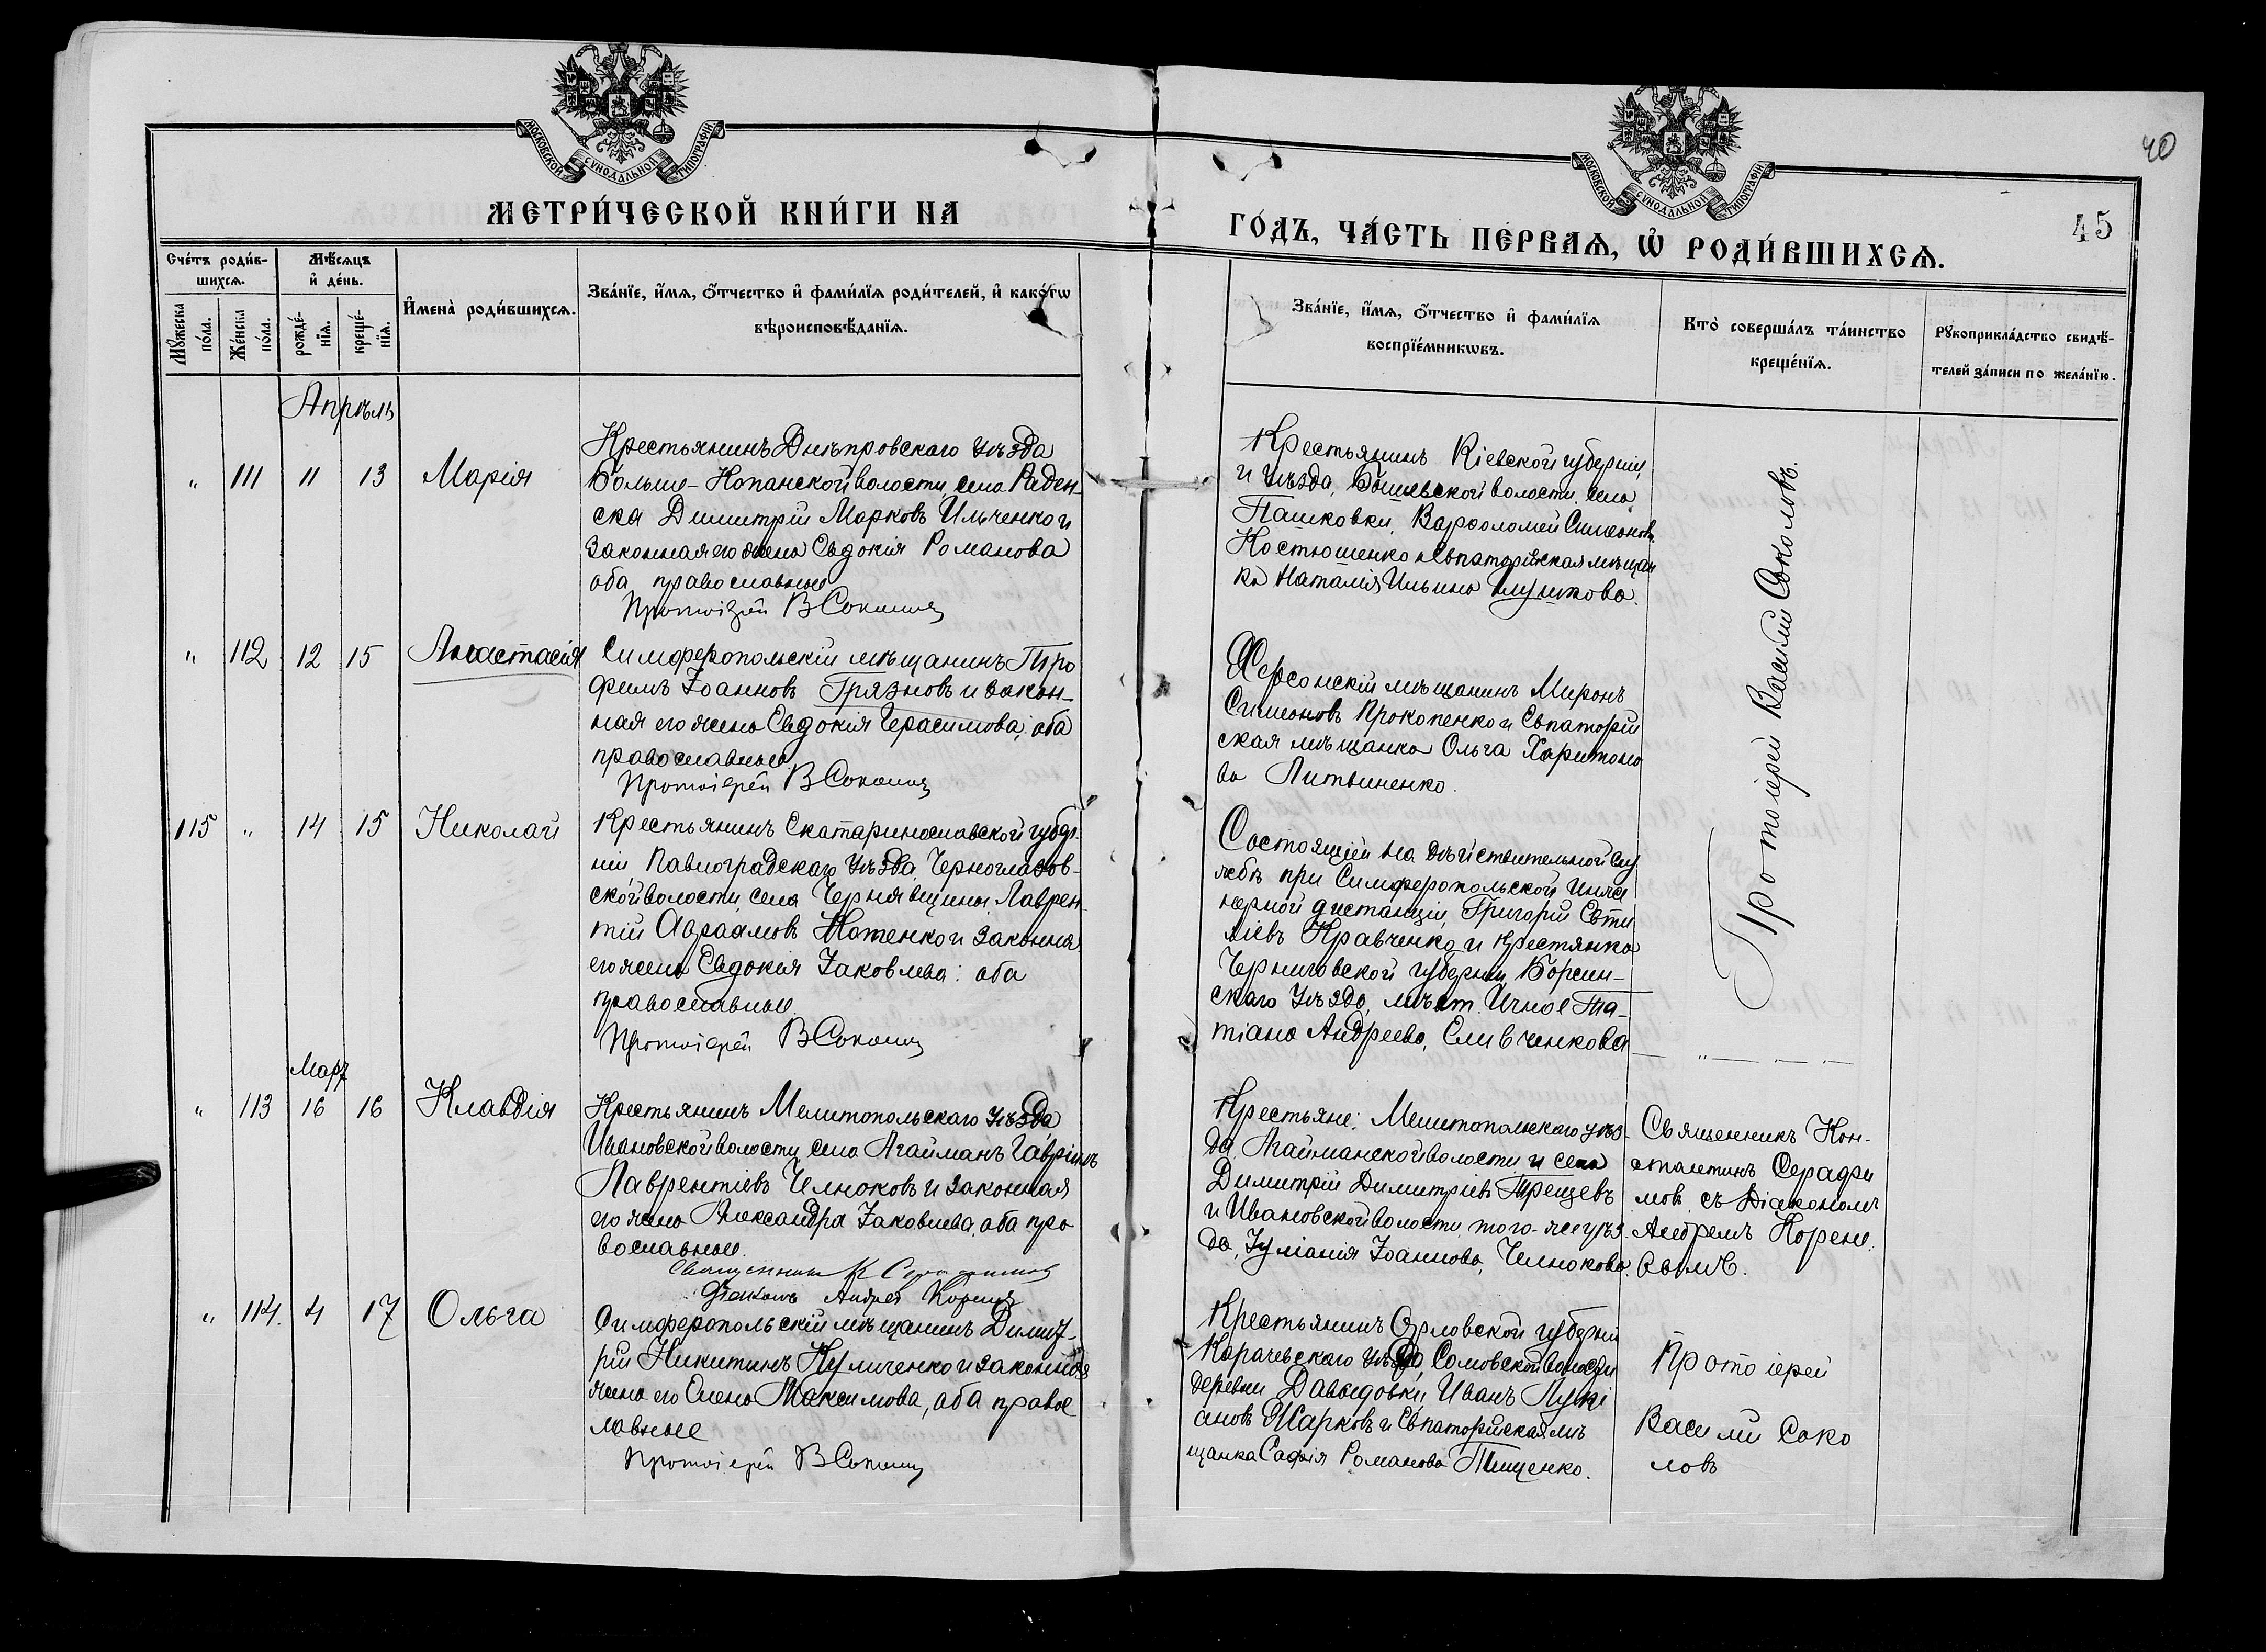 МОСКОВСКОЙ СУНОДАЛЬНОЙ ТИПОГРАФІИ
МОСКОВСКОЙ СУНОДАЛЬНОЙ ТИПОГРАФІИ
40
45
МЕТРИ́ЧЕСКОЙ КНИ́ГИ НА
ГО́ДЪ, ЧА́СТЬ ПЕ́РВАѦ, Ѡ҆ РОДИ́ВШИХСѦ.
Сче́тъ роди́в-
шихсѧ.
Мꙋ́жеска по́ла.
Же́нска по́ла.
Мѣ́сѧцъ
и҆ де́нь.
рожде́-
нїѧ.
креще́-
нїѧ.
И҆мена̀ роди́вшихсѧ.
Зва́нїе, и҆́мѧ, ѻ҆́тчество и҆ фами́лїѧ роди́телей, и҆ како́гѡ
вѣроисповѣ́данїѧ.
Зва́нїе, и҆́мѧ, ѻ҆́тчество и҆ фами́лїѧ
воспрїе́мникѡвъ.
Кто̀ соверша́лъ та́инство
креще́нїѧ.
Рꙋкоприкла́дство свидѣ́-
телей за́писи по жела́нїю.
Апрѣль
" 111 11 13 Марія
Крестьянинъ Днѣпровскаго уѣзда
Больше-Копанской волости, села Раден-
ска Димитрій Марковъ Ильченко и
законная его жена Евдокія Романова
оба православные
Протоіерей В Соколовъ
Крестьянинъ Кіевской губерніи,
и уѣзда, волости, села
Пашковки, Варфоломей Симеоновъ
Костюшенко и Евпаторійская мѣщан
ка Наталія Ильина Глушкова.
Протоіерей Василій Соколовъ.
" 112 12 15 Анастасія
Симферопольскій мѣщанинъ Тро
фимъ Іоанновъ Грязновъ и закон-
ная его жена Евдокія Герасимова, оба
православные
Протоіерей В Соколовъ
Херсонскій мѣщанинъ Миронъ
Симеоновъ Прокопенко и Евпаторій
ская мѣщанка Ольга Харитоно
ва Литвиненко.
115 " 14 15 Николай
Крестьянинъ Екатаринославской губер-
ніи, Павлоградскаго уѣзда, Черноглазов-
ской волости, села Чернявщины, Лаврен-
тій Авраамовъ и законная
его жена Евдокія Іаковлева: оба
православные.
Протоіерей В Соколовъ
Состоящій на дѣйствительной слу
жбѣ при Симферопольской Инже
нерной дистанціи, Григорій Евти
хіевъ Кравченко и крестянка
Черниговской губерніи, Борзен-
скаго уѣзда, мѣст. Ичное Та-
тіана Андреева, Еливченкова
Март
" 113 16 16 Клавдія
Крестьянинъ Мелитопольскаго уѣзда
Ивановской волости, села Агайманъ Гавріилъ
Лаврентіевъ Челноковъ и законная
его жена Александра Іаковлева, оба пра
вославные.
Священникъ К Серафимовъ
Діаконъ Андрей Кореневъ
Крестьяне: Мелитопольскаго уѣз-
да, Агайманской волости и села
Димитрій Димитріевъ Трещевъ
и Ивановской волости, того-же уѣз-
да, Іуліанія Іоаннова, Челнокова.
Священникъ Кон-
стантинъ Серафи
мов съ Діакономъ
Андреемъ Корене
вымъ.
" 114. 4 17 Ольга
Симферопольскій мѣщанинъ Димит-
рій Никитинъ Куличенко и законная
жена его Елена Максимова, оба правос
лавные
Протоіерей В Соколовъ
Крестьянинъ Орловской губерніи
Карачевскаго уѣзда, Самовской волости
деревни Давыдовки, Иванъ Лукі
ановъ Жарковъ и Евпаторійская мѣ
щанка Софія Романова Тищенко.
Протоіерей
Василій Соко
ловъ